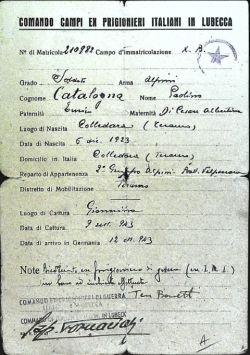 COMANDO CAMPI EX PRIGIONIERI ITALIANI IN LUBECCA
N° di Matricola 210982 Campo d'immatricolazione X. B.
Grado Soldato Arma Alpini
Cognome Catalogna Nome Paolino
Paternità Maternità Di Cesare Albertina
Luogo di Nascita Colledara (Teramo)
Data di Nascita 6 dic. 1923
Domicilio in Italia Colledara (Teramo)
Reparto di Appartenenza 2° Gruppo Alpini
Distretto di Mobilitazione Teramo
Luogo di Cattura Giannina
Data di Cattura 9 sett. 943
Data di arrivo in Germania 12 943
Note prigioniero di guerra (in I.M.I.)
in base ad
COMANDO PRIGIONIERI DI GUERRA Ten
COMANDO IN LUBECK
A